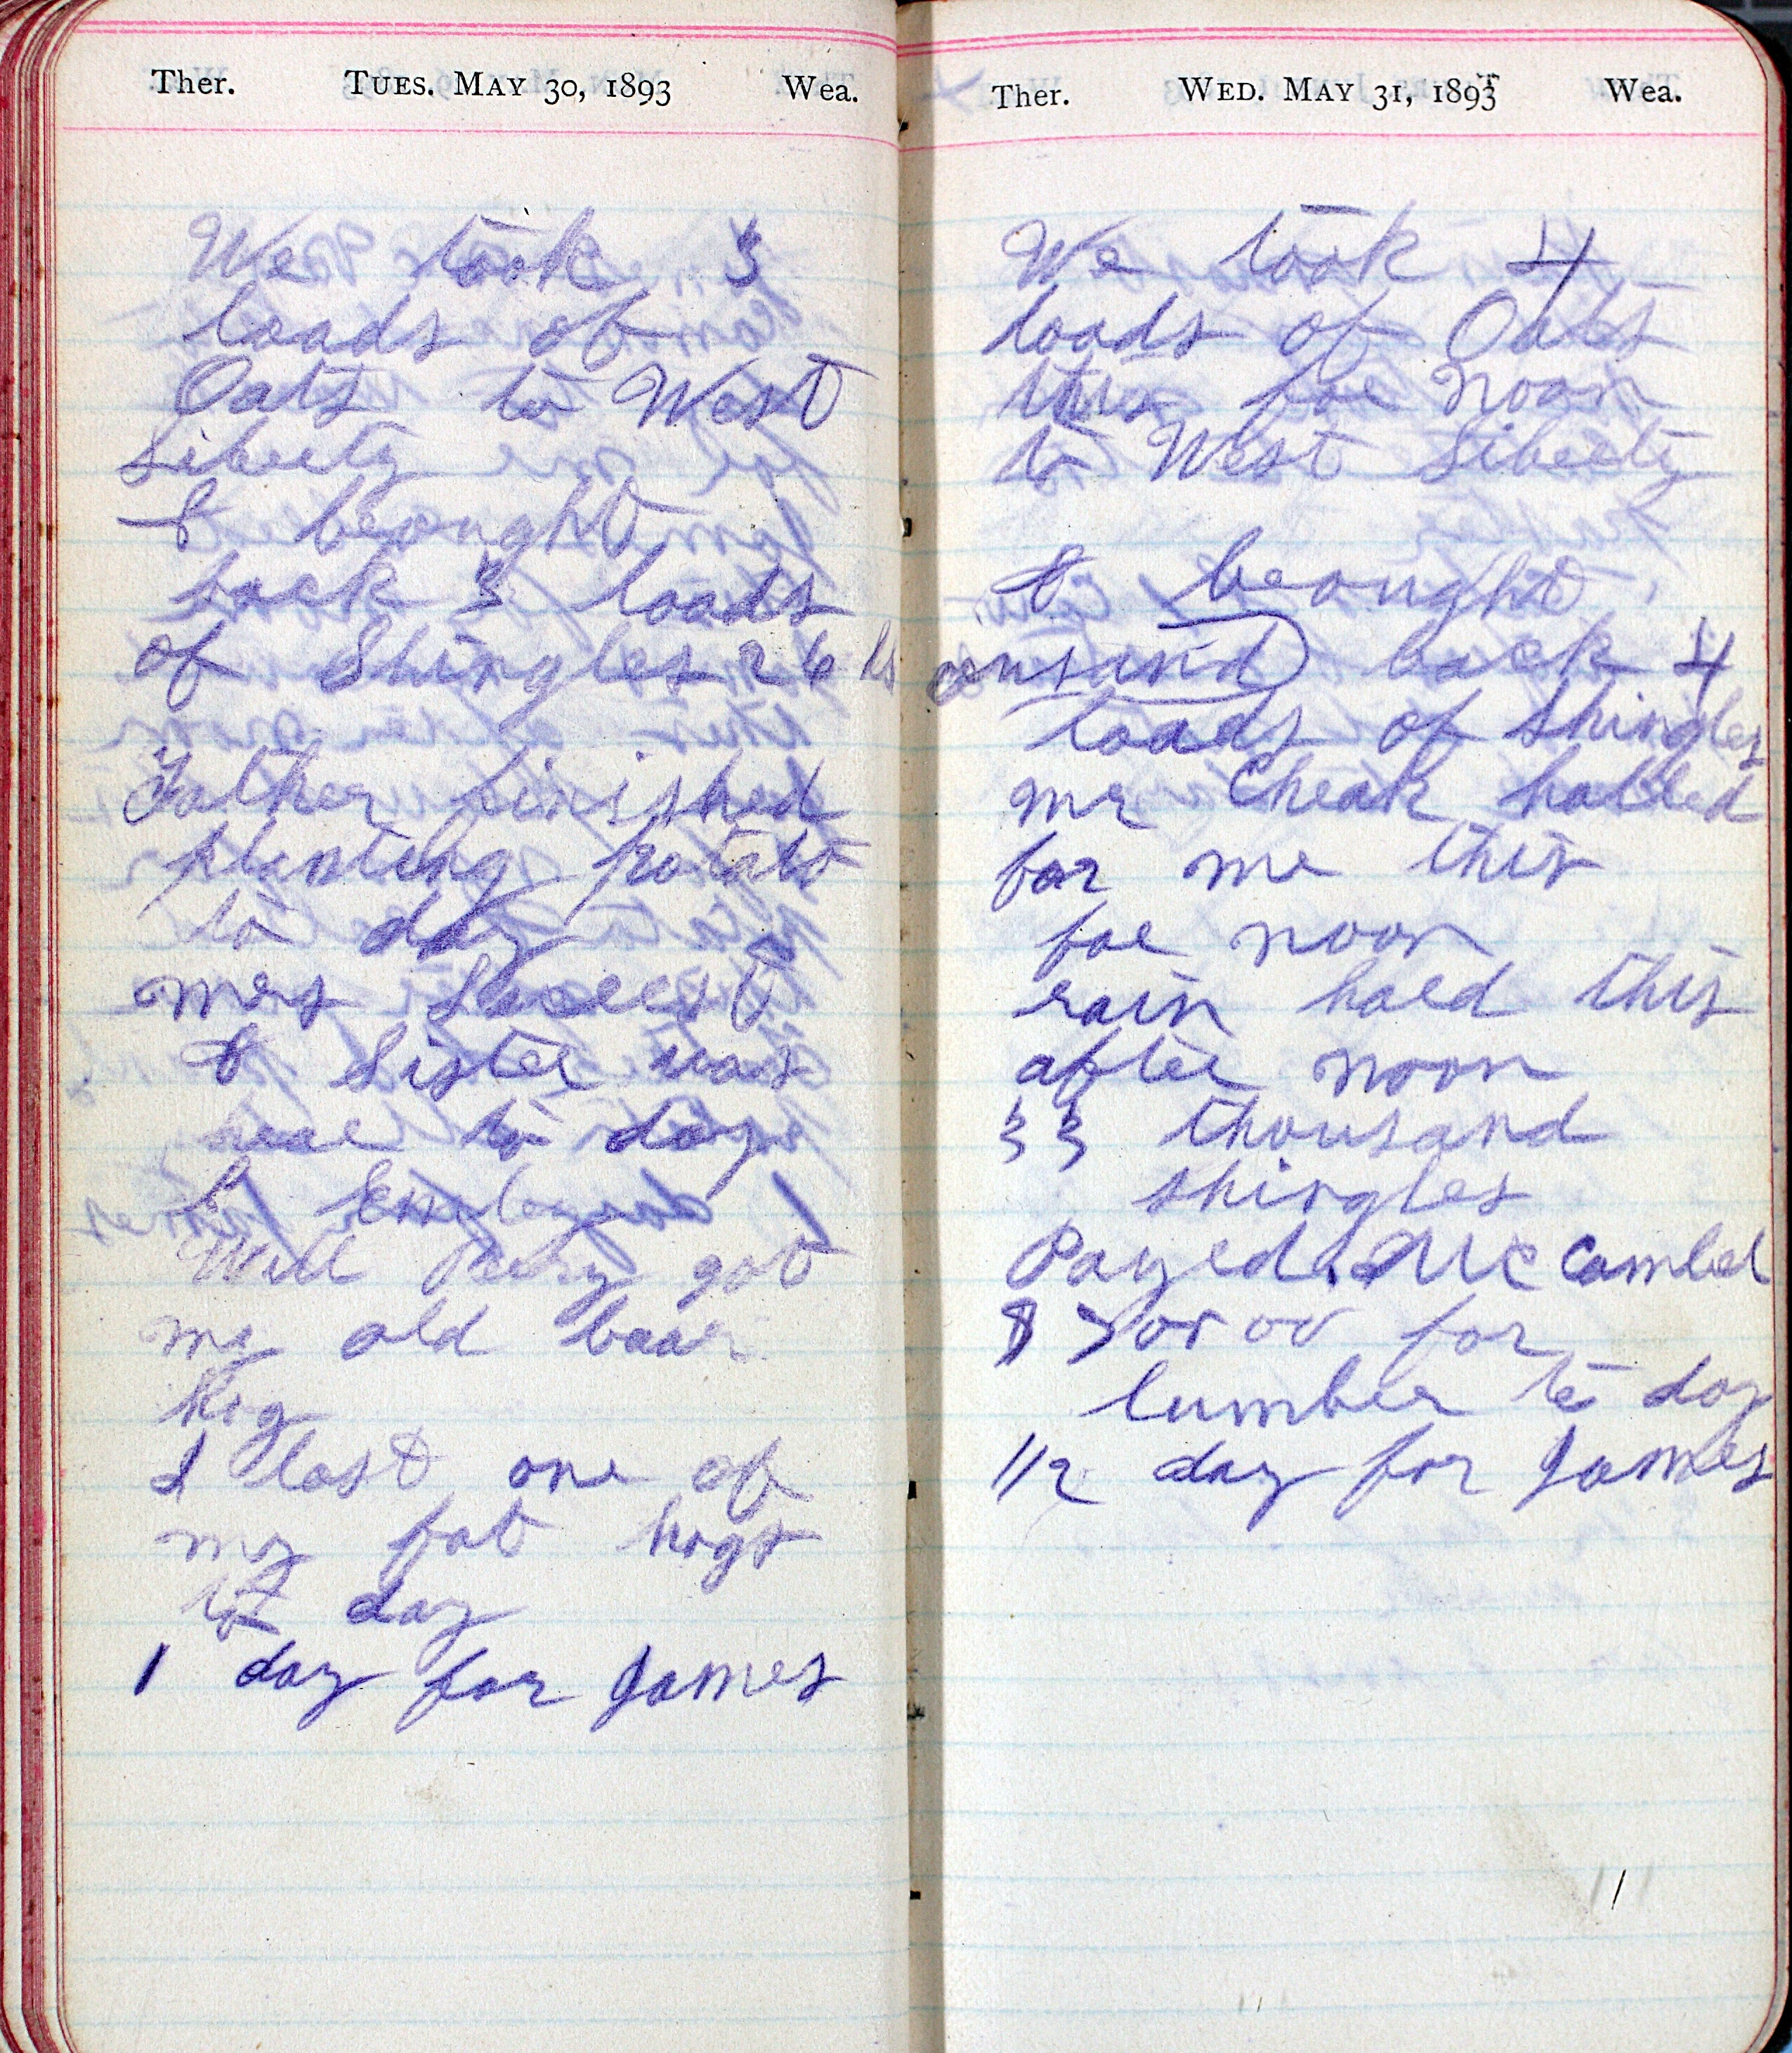 Ther. TUES. MAY 30, 1893 Wea.
We took 3
loads of
Oats to West
Liberty
& brought
back 3 loads
of Shingles 26
Father finished
planting potato
to day
mrs
& Sister was
hear to day
&
Will got
my old boar
Hog
I lost one of
my fat hogs
to day
1 day for James
Ther. WED. MAY 31, 1893 Wea.
We took 4
loads of Oats
this foe noon
to West Liberty
& brought
ousand back 4
loads of shingles
mr Cheak halled
for me this
foe noon
rain hard this
after noon
33 thousand
shingles
Payed Mc Combel
for
lumber to day
1/2 day for James